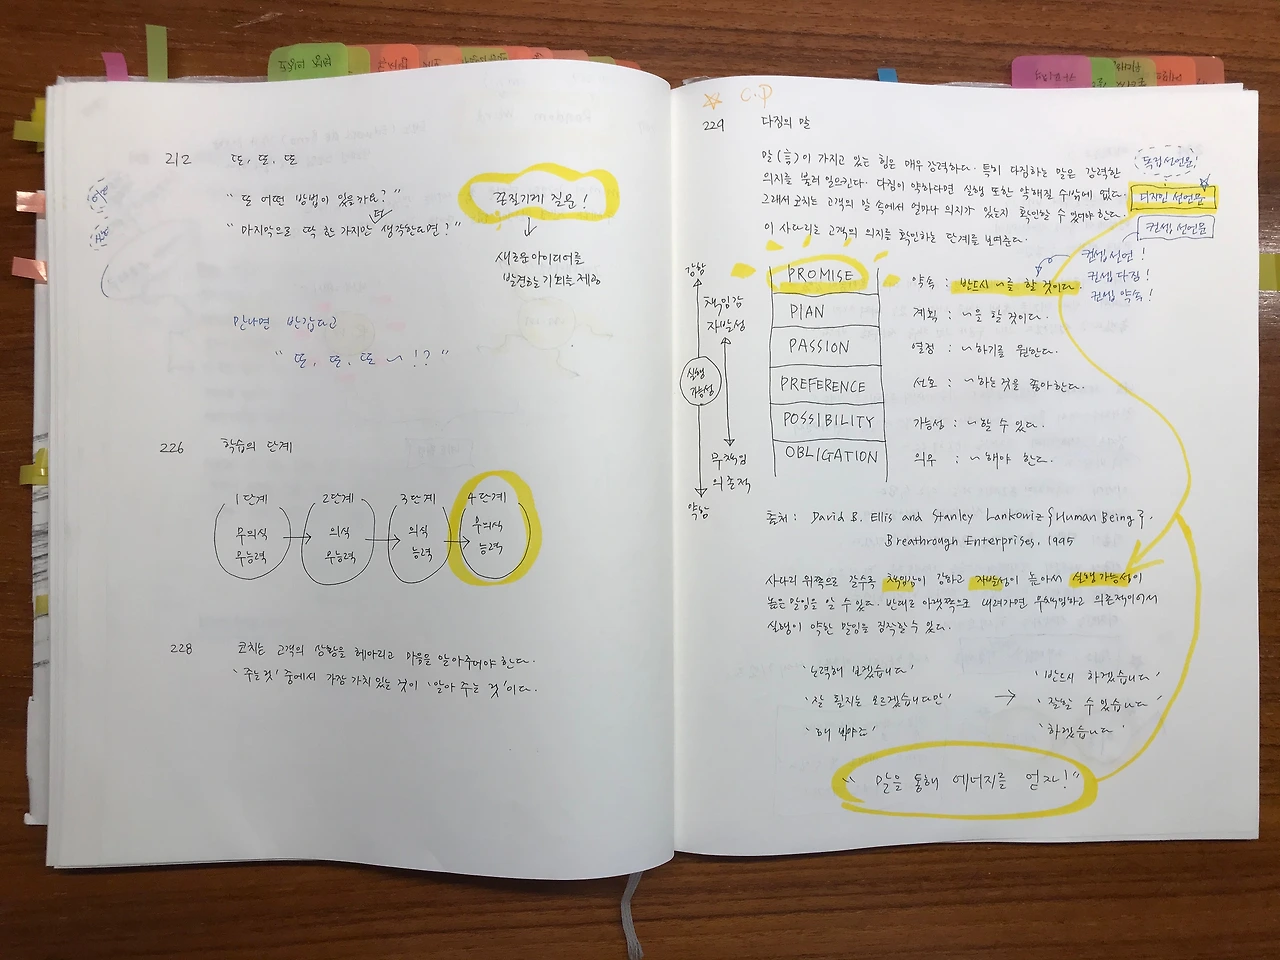 212 또, 또, 또
"또 어떤 방법이 있을까요?"
더
"마지막으로 딱 한 가지만 생각한다면?"
끈질기게 질문!
새로운 아이디어를
발견하는 기회를 제공
만나면 반갑다고
"또, 또, 또 ~ !?"
226 학습의 단계
1단계 2단계 3단계 4단계
무의식 의식 의식 무의식
무능력 무능력 능력 능력
228 코치는 고객의 상황을 헤아리고 마음을 알아주어야 한다.
'주는것' 중에서 가장 가치 있는 것이 '알아 주는 것'이다.
☆ C.P
229 다짐의 말
말(言)이 가지고 있는 힘은 매우 강력하다. 특히 다짐하는 말은 강력한
의지를 불러 일으킨다. 다짐이 약하다면 실행 또한 약해질 수밖에 없다.
그래서 코치는 고객의 말 속에서 얼마나 의지가 있는지 확인할 수 있어야 한다.
이 사다리는 고객의 의지를 확인하는 단계를 보여준다.
독점선언문!
디자인 선언문
컨셉 선언문
컨셉 선언!
컨셉 다짐!
컨셉 약속!
강함
책임감
자발성
실행
가능성
무책임
의존적
약함
PROMISE 약속 : 반드시 ~를 할 것이다.
PLAN 계획 : ~을 할 것이다.
PASSION 열정 : ~하기를 원한다.
PREFERENCE 선호 : ~하는 것을 좋아한다.
POSSIBILITY 가능성 : ~할 수 있다.
OBLIGATION 의무 : ~해야 한다.
출처 : David B. Ellis and Stanley Lankowiz {Human Being}.
Breathrough Enterprises, 1995
사다리 위쪽으로 갈수록 책임감이 강하고 자발성이 높아서 실행가능성이
높은 말임을 알 수 있다. 반대로 아랫쪽으로 내려가면 무책임하고 의존적이어서
실행이 약한 말임을 짐작할 수 있다.
'노력해 보겠습니다' '반드시 하겠습니다'
'잘 될지는 모르겠습니다만' → '잘할 수 있습니다'
'해 봐야죠' '하겠습니다'
"말을 통해 에너지를 얻자!"